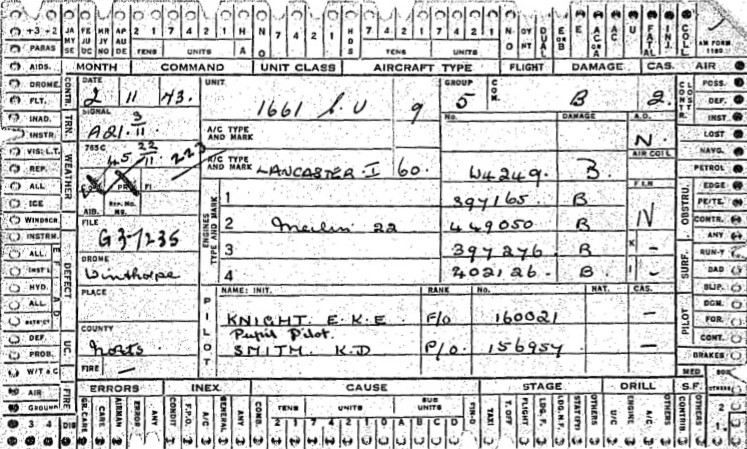 +3 +2 JA FE MR AP 2 1 7 4 2 1 H N 7 4 2 1 H 7 4 2 1 7 4 2 1 N OY DUAL E AC ACC U F INJ. COLL
PARAS MY JU JY AU TENS UNITS A O UNITS S TENS UNITS O NT or B or A AM FORM 1180
SE DC NO DE
AIDS. MONTH COMMAND UNIT CLASS AIRCRAFT TYPE FLIGHT DAMAGE CAS. AIR
DROME CONTR. DATE UNIT GROUP COM. CONTR LOST POSS.
FLT. 2 11 43. 1661 C.U 9 5 B 2. DEF.
INAD. TRN. SIGNAL No. DAMAGE A.D. INST
INSTR. A21. 3/11 A/C TYPE AND MARK N LOST
VIS: L.T. WEATHER 765C 45 22/11 223 AIR COLL NAVG.
REP. A/C TYPE AND MARK LANCASTER I 60. W4249. B. PETROL
ALL FI F I R OBSTRU. EDGE
ICE AIB. REP. NO. ENGINES TYPE AND MARK 1 397165 B PE/TE.
WINDSCR. FILE 2 Merlin 22 449050 B N CONTR.
INSTRM. G37235 ANY
ALL DEFECT DROME 3 397276 B X - SURF. RUN-Y
INST L Winthorpe 4 402126 B 1 - BAD
HYD. PLACE PILOT NAME: INIT. RANK No. NAT. CAS. PILOT SLIP.
ALL DGM.
COUNTY KNIGHT. E.K.E F/O 160021 - FOR.
DEF. UC. Notts Pupil Pilot. CONT.
PROB. SMITH. K.D P/O 156957 - BRAKES
W/T & C FIRE - MED BOX
AIR FIRE ERRORS INEX. CAUSE STAGE DRILL S.F. OTHERS
GROUND GR. CARE CARE AIRMAN ERROR ANY CONDIT F.P.O. A/C GENERAL ANY COMB. TENS UNITS SUB UNITS FIN-D TAXI T. OFF FLIGHT LDG. F. LDG. N.F. STAT(FY) OTHERS U/C ENGINE A/C OTHERS CONTRIB OTHERS 2
3 4 DIS 2 1 7 4 2 1 0 A B C D 1